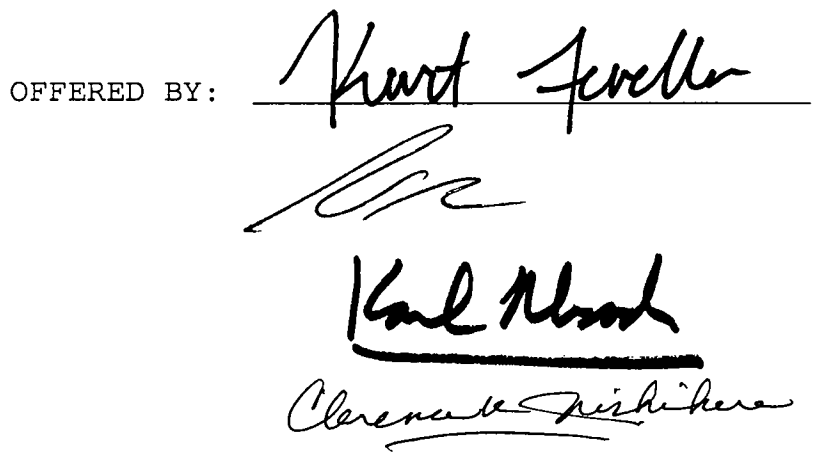 OFFERED BY: Kurt Fevella
Karl Rhoads
Clarence K Nishihara